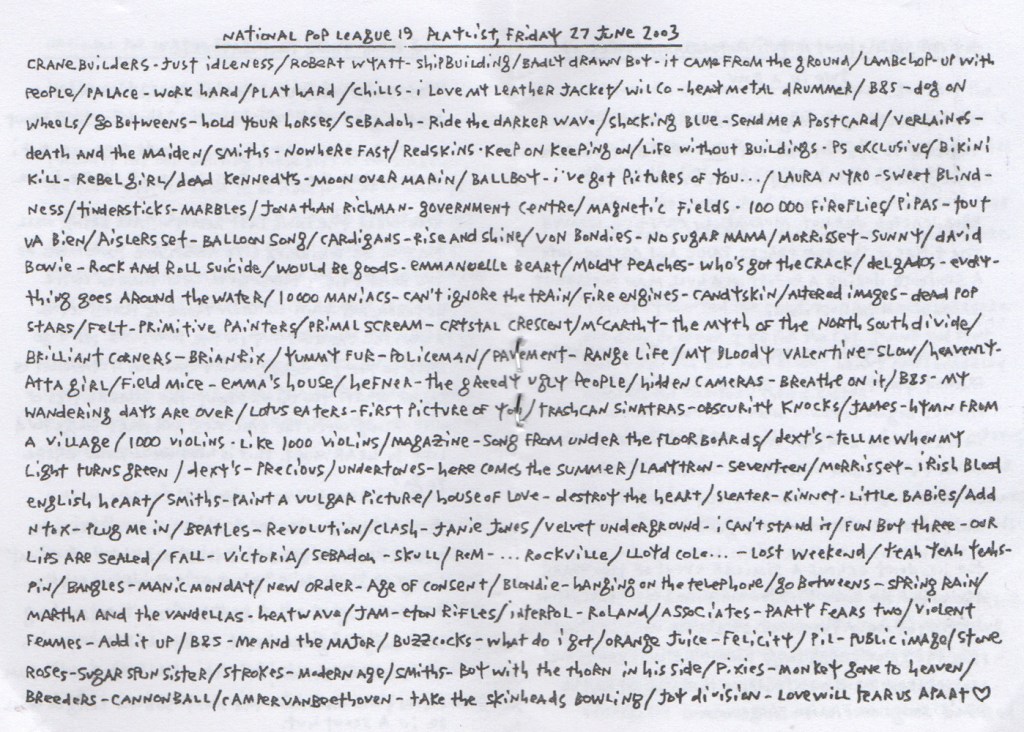 NATIONAL POP LEAGUE 19 PLAYLIST, FRIDAY 27 JUNE 2003
CRANEBUILDERS - JUST IDLENESS/ROBERT WYATT - SHIPBUILDING/BADLY DRAWN BOY - IT CAME FROM THE GROUND/LAMBCHOP - UP WITH
PEOPLE/PALACE - WORK HARD/PLAY HARD/CHILLS - I LOVE MY LEATHER JACKET/WILCO - HEAVY METAL DRUMMER/B&S - DOG ON
WHEELS/GO BETWEENS - HOLD YOUR HORSES/SEBADOH - RIDE THE DARKER WAVE/SHOCKING BLUE - SEND ME A POSTCARD/VERLAINES -
DEATH AND THE MAIDEN/SMITHS - NOWHERE FAST/REDSKINS - KEEP ON KEEPING ON/LIFE WITHOUT BUILDINGS - PS EXCLUSIVE/BIKINI
KILL - REBEL GIRL/DEAD KENNEDYS - MOON OVER MARIN/BALLBOY - I'VE GOT PICTURES OF YOU.../LAURA NYRO - SWEET BLIND-
NESS/TINDERSTICKS - MARBLES/JONATHAN RICHMAN - GOVERNMENT CENTRE/MAGNETIC FIELDS - 100 000 FIREFLIES/PIPAS - TOUT
VA BIEN/AISLERS SET - BALLOON SONG/CARDIGANS - RISE AND SHINE/VON BONDIES - NO SUGAR MAMA/MORRISSEY - SUNNY/DAVID
BOWIE - ROCK AND ROLL SUICIDE/WOULD BE GOODS - EMMANUELLE BEART/MOLDY PEACHES - WHO'S GOT THE CRACK/DELGADOS - EVERY-
THING GOES AROUND THE WATER/10 000 MANIACS - CAN'T IGNORE THE TRAIN/FIRE ENGINES - CANDYSKIN/ALTERED IMAGES - DEAD POP
STARS/FELT - PRIMITIVE PAINTERS/PRIMAL SCREAM - CRYSTAL CRESCENT/McCARTHY - THE MYTH OF THE NORTH SOUTH DIVIDE/
BRILLIANT CORNERS - BRIAN RIX/YUMMY FUR - POLICEMAN/PAVEMENT - RANGE LIFE/MY BLOODY VALENTINE - SLOW/HEAVENLY -
ATTA GIRL/FIELD MICE - EMMA'S HOUSE/HEFNER - THE GREEDY UGLY PEOPLE/HIDDEN CAMERAS - BREATHE ON IT/B&S - MY
WANDERING DAYS ARE OVER/LOTUS EATERS - FIRST PICTURE OF YOU/TRASHCAN SINATRAS - OBSCURITY KNOCKS/JAMES - HYMN FROM
A VILLAGE/1000 VIOLINS - LIKE 1000 VIOLINS/MAGAZINE - SONG FROM UNDER THE FLOORBOARDS/DEXY'S - TELL ME WHEN MY
LIGHT TURNS GREEN/DEXY'S - PRECIOUS/UNDERTONES - HERE COMES THE SUMMER/LADYTRON - SEVENTEEN/MORRISSEY - IRISH BLOOD
ENGLISH HEART/SMITHS - PAINT A VULGAR PICTURE/HOUSE OF LOVE - DESTROY THE HEART/SLEATER-KINNEY - LITTLE BABIES/ADD
N TO X - PLUG ME IN/BEATLES - REVOLUTION/CLASH - JANIE JONES/VELVET UNDERGROUND - I CAN'T STAND IT/FUN BOY THREE - OUR
LIPS ARE SEALED/FALL - VICTORIA/SEBADOH - SKULL/REM - ...ROCKVILLE/LLOYD COLE... - LOST WEEKEND/YEAH YEAH YEAHS -
PIN/BANGLES - MANIC MONDAY/NEW ORDER - AGE OF CONSENT/BLONDIE - HANGING ON THE TELEPHONE/GO BETWEENS - SPRING RAIN/
MARTHA AND THE VANDELLAS - HEATWAVE/JAM - ETON RIFLES/INTERPOL - ROLAND/ASSOCIATES - PARTY FEARS TWO/VIOLENT
FEMMES - ADD IT UP/B&S - ME AND THE MAJOR/BUZZCOCKS - WHAT DO I GET/ORANGE JUICE - FELICITY/PIL - PUBLIC IMAGE/STONE
ROSES - SUGAR SPUN SISTER/STROKES - MODERN AGE/SMITHS - BOY WITH THE THORN IN HIS SIDE/PIXIES - MONKEY GONE TO HEAVEN/
BREEDERS - CANNONBALL/CAMPER VAN BEETHOVEN - TAKE THE SKINHEADS BOWLING/JOY DIVISION - LOVE WILL TEAR US APART ♡